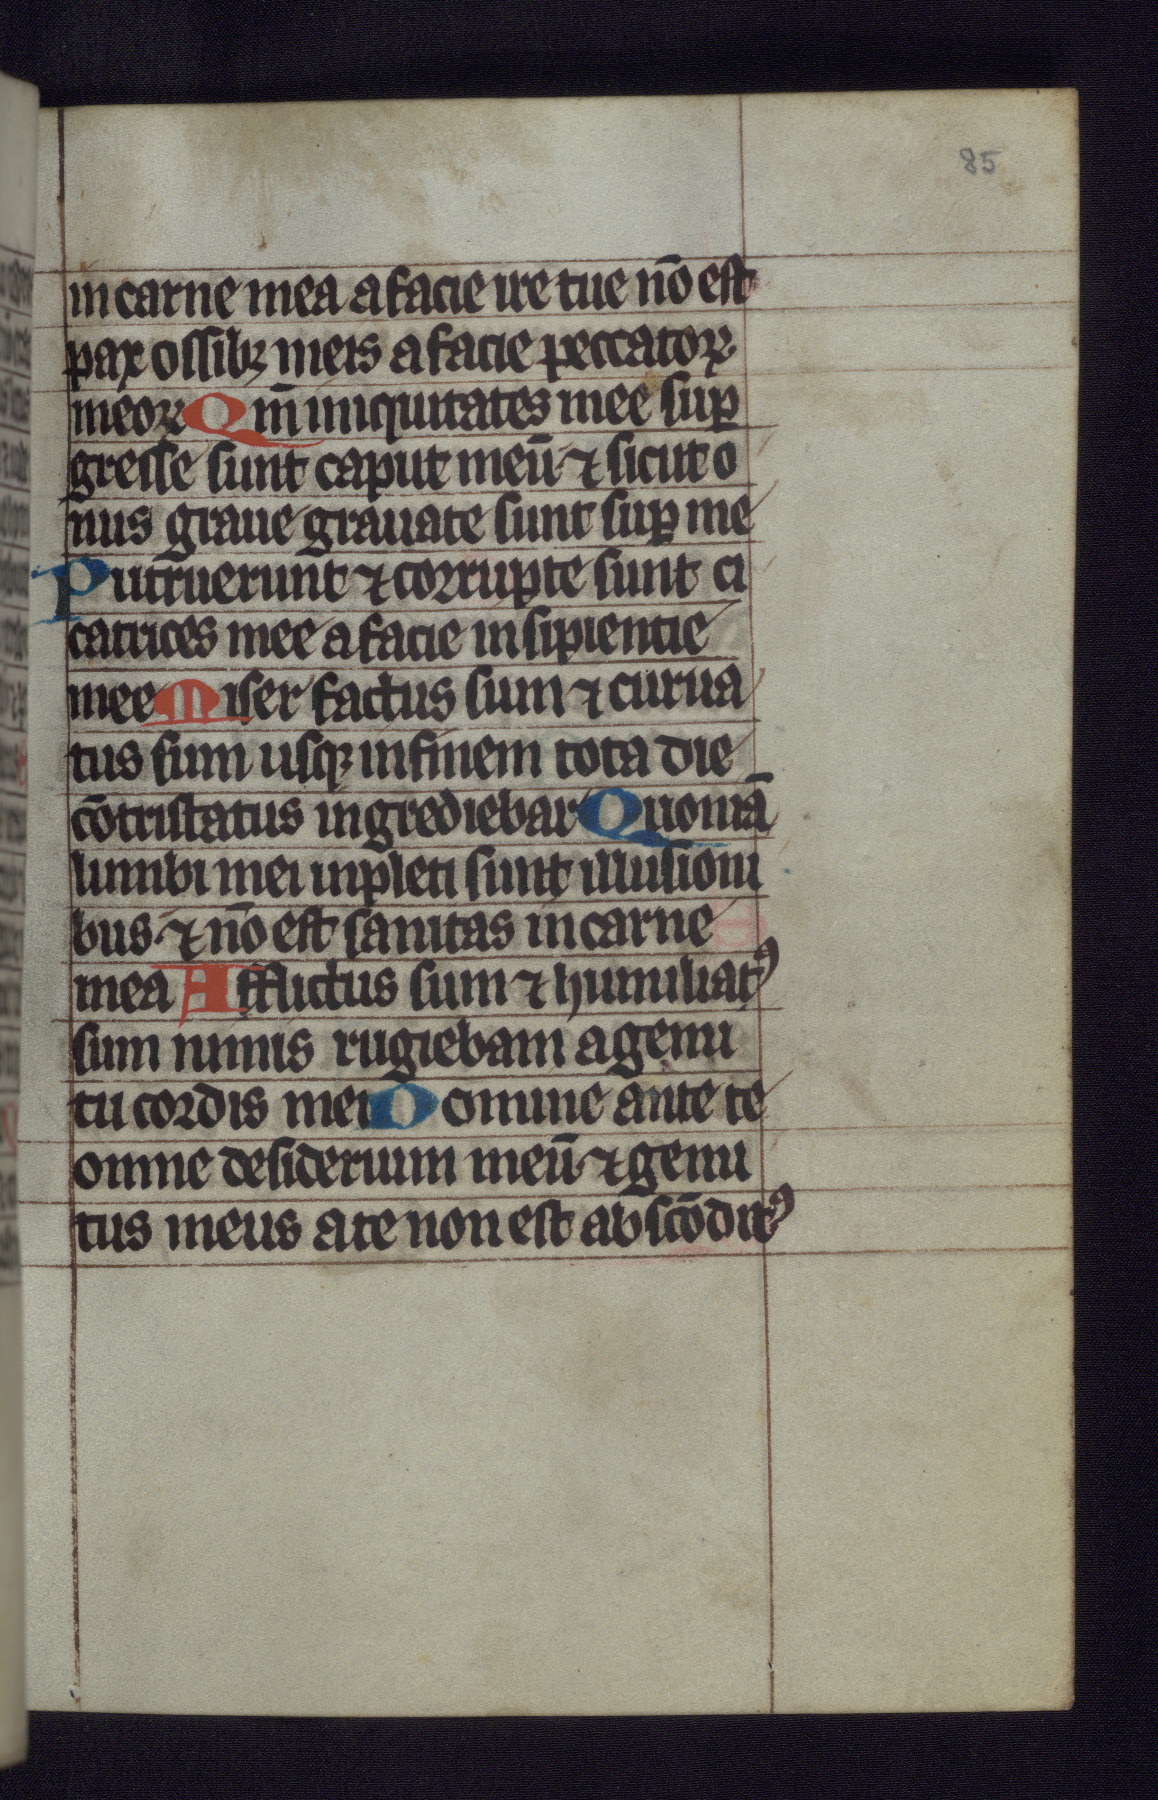 85
in carne mea a facie ire tue nō est
pax ossibꝫ meis a facie peccatoꝝ
meoꝝ Qm̄ iniquitates mee suꝑ
gresse sunt caput meū ⁊ sicut o
nus graue grauate sunt suꝑ me
Putruerunt ⁊ corrupte sunt ci
catrices mee a facie insipientie
mee Miser factus sum ⁊ curua
tus sum usqꝫ in finem tota die
cōtristatus ingrediebar Quoniā
lumbi mei inpleti sunt illusioni
bus ⁊ nō est sanitas in carne
mea Afflictus sum ⁊ humiliatꝰ
sum nimis rugiebam a gemi
tu cordis mei Domine ante te
omne desiderium meū ⁊ gemi
tus meus a te non est abscōditꝰ